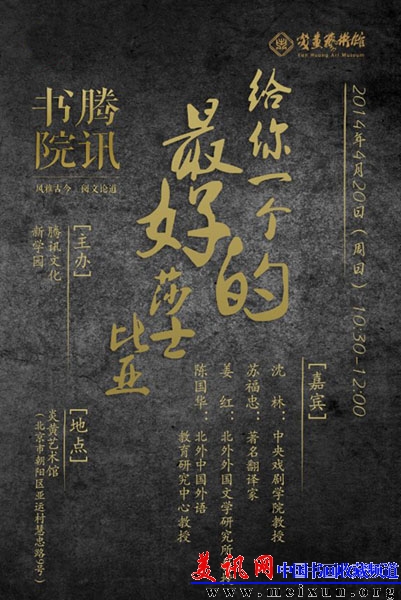 炎黃藝術館
Yan Huang Art Museum
2014年4月20日（周日）10:30-12:00
给你一个
最好的
莎士
比亚
腾讯
书院
风雅古今 阅文论道
[嘉宾]
沈 林：中央戏剧学院教授
苏福忠：著名翻译家
姜 红：北外外国文学研究所
陈国华：北外中国外语
教育研究中心教授
[主办]
腾讯文化
新学园
[地点]
炎黄艺术馆
（北京市朝阳区亚运村慧忠路9号）
美讯网 中国书画收藏频道
www.meixun.org